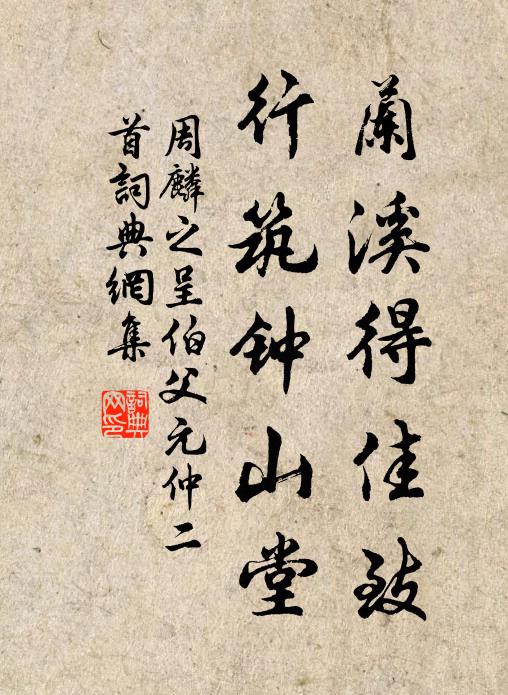 蘭溪得佳致
行筑钟山堂
周麟之呈伯父元仲二
首詞典網集
詞典
网印